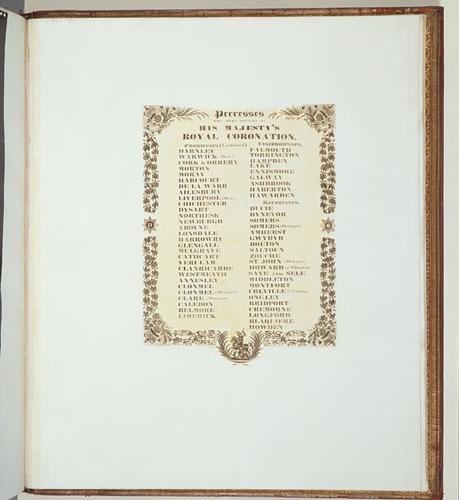 Peeresses
WHO WERE PRESENT AT
HIS MAJESTY'S
ROYAL CORONATION.
Countesses (Continued)
DARNLEY
WARWICK (Dow.)
CORK & ORRERY
MORTON
MORAY
HARCOURT
DE LA WARR
AILESBURY
LIVERPOOL (Dow.)
CHICHESTER
DYSART
NORTHESK
NEWBURGH
ABOYNE
LONSDALE
HARROWBY
GLENGALL
MULGRAVE
CATHCART
VERULAM
CLANRICARDE
WESTMEATH
ANNESLEY
CLONMEL
CLONMEL (Dowager)
CLARE (Dowager)
CALEDON
BELMORE
LIMERICK
Viscountesses.
FALMOUTH
TORRINGTON
HAMPDEN
LAKE
ENNISMORE
GALWAY
ASHBROOK
HABERTON
HAWARDEN
Baronesses.
DUCIE
DYNEVOR
SOMERS
SOMERS (Dowager)
AMHERST
GWYDYR
BOLTON
SALTOUN
ZOUCHE
ST. JOHN (Dowager)
HOWARD of Effingham
SAYE AND SELE
MIDDLETON
MONTFORT
COLVILLE of Culross
ONGLEY
BRIDPORT
CREMORNE
LONGFORD
BLAQUIERE
HOWDEN